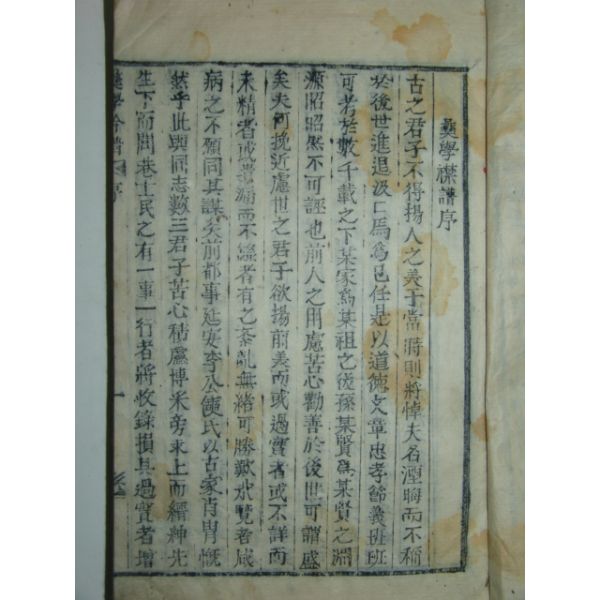 彛學襟譜序
古之君子不得揚人之美于當時則將悼夫名湮晦而不稱
於後世進退汲口焉爲已任是以道德文章忠孝節義班班
可考於數千載之下某家爲某祖之後孫某賢爲某賢之淵
源昭昭然不可誣也前人之用處苦心勸善於後世可謂盛
矣夫何挽近處世之君子欲揚前美而或過實者或不詳而
未精者或漏而不錄者有之紊亂無緒可勝歎水覽者咸
病之不願同其謀矣前都事延安李公氏以古家肖胄慨
然乎此與同志數三君子苦心積慮博采旁求上而縉紳先
生下而閭巷士民之有一事一行者蔣收錄損其過實者增
序
一